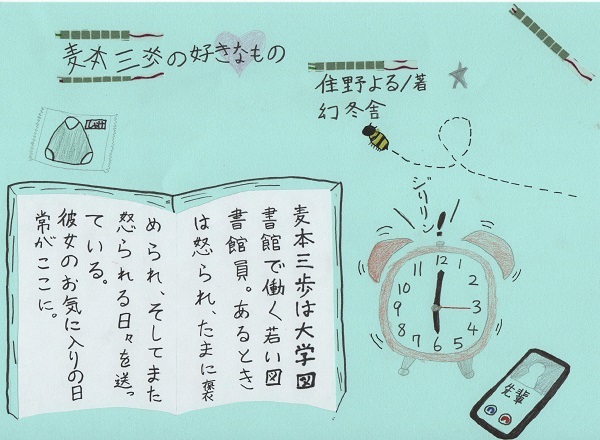 麦本三歩の好きなもの
住野よる/著
幻冬舎
ジリリン
12
1
2
3
4
5
6
7
8
9
10
11
麦本三歩は大学図
書館で働く若い図
書館員。あるとき
は怒られ、たまに褒
められ、そしてまた
怒られる日々を送っ
ている。
彼女のお気に入りの日
常がここに。
先輩